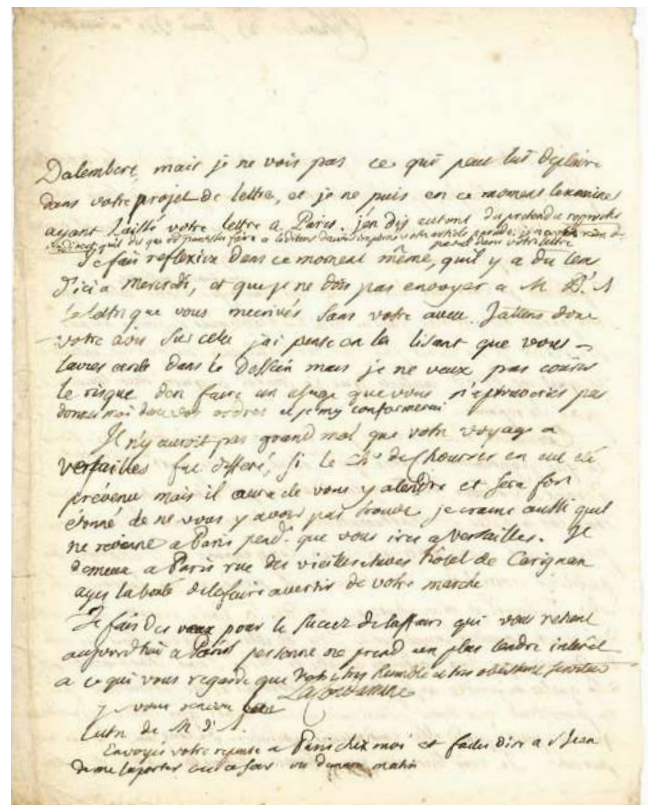 Dalembert, mais je ne vois pas ce qui peut lui deplaire
dans votre projet de lettre, et je ne puis en ce moment lexaminer
ayant laissé votre lettre a Paris. j'en dis autant du pretendu reproche
votre article
dans votre lettre
Je fais reflexion dans ce moment même, quil y a du tems
d'ici a Mercredi, et que je ne dois pas envoyer a M. D'A
la lettre que vous mecrivés sans votre aveu. Jattens donc
votre avis sur cela jai pensé en la lisant que vous
laviés ecrite dans ce dessein mais je ne veux pas courir
le risque den faire un usage que vous n'approuveriés pas
donnés moi donc vos ordres et je my conformerai
Il n'y auroit pas grand mal que votre voyage a
versailles fut differé, si le Ch.er de Chourrer en eut eté
prévenu mais il aura eté vous y atendre et sera fort
étonné de ne vous y avoir pas trouvé je crains aussi quil
ne revienne a Paris pend.t que vous irez a versailles. Je
demeure a Paris rue des vieilles etuves hôtel de Carignan
ayés la bonté de le faire avertir de votre marche
Je fais des vœux pour le succez de laffaire qui vous retient
aujourdhui a Paris personne ne prend un plus tendre interêt
a ce qui vous regarde que votre tres humble et tres obeissant serviteur
La Condamine
je vous renvoie
lettre de M d'A.
Envoyés votre reponse a Paris chez moi et faites dire a St Jean
de me laporter ce soir ou demain matin